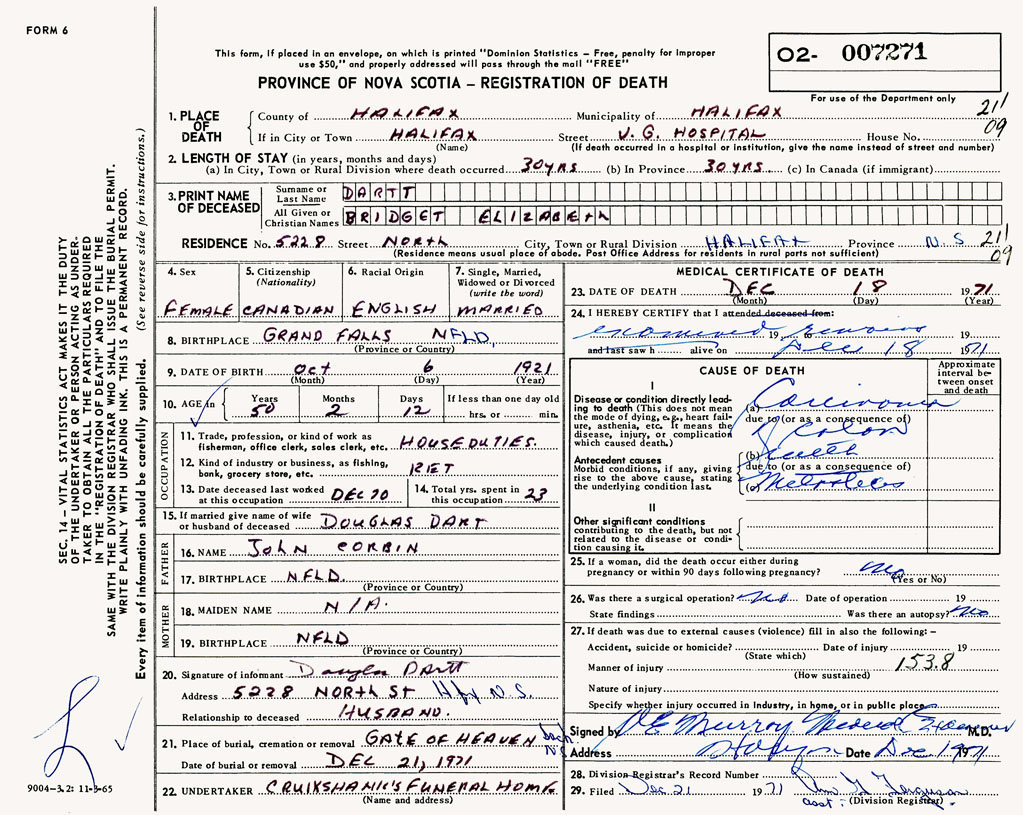 FORM 6
This form, if placed in an envelope, on which is printed "Dominion Statistics – Free, penalty for improper
use $50," and properly addressed will pass through the mail "FREE"
PROVINCE OF NOVA SCOTIA – REGISTRATION OF DEATH
02- 007271
For use of the Department only
1. PLACE OF DEATH
County of HALIFAX Municipality of HALIFAX 21/
If in City or Town HALIFAX Street V. G. HOSPITAL House No. 09
(Name) (If death occurred in a hospital or institution, give the name instead of street and number)
2. LENGTH OF STAY (in years, months and days)
(a) In City, Town or Rural Division where death occurred 30 YRS (b) In Province 30 YRS (c) In Canada (if immigrant)
3. PRINT NAME OF DECEASED
Surname or Last Name DARTT
All Given or Christian Names BRIDGET ELIZABETH
RESIDENCE No. 5228 Street NORTH City, Town or Rural Division HALIFAX Province N. S 21/
(Residence means usual place of abode. Post Office Address for residents in rural parts not sufficient) 09
4. Sex
FEMALE
5. Citizenship (Nationality)
CANADIAN
6. Racial Origin
ENGLISH
7. Single, Married, Widowed or Divorced (write the word)
MARRIED
8. BIRTHPLACE GRAND FALLS NFLD,
(Province or Country)
9. DATE OF BIRTH OCT 6 1921
(Month) (Day) (Year)
10. AGE in Years 50 Months 2 Days 12 If less than one day old hrs. or min.
OCCUPATION
11. Trade, profession, or kind of work as
fisherman, office clerk, sales clerk, etc. HOUSEDUTIES.
12. Kind of industry or business, as fishing,
bank, grocery store, etc. RET
13. Date deceased last worked
at this occupation DEC 70
14. Total yrs. spent in
this occupation 23
15. If married give name of wife
or husband of deceased DOUGLAS DART
FATHER
16. NAME JOHN CORBIN
17. BIRTHPLACE NFLD.
(Province or Country)
MOTHER
18. MAIDEN NAME N/A.
19. BIRTHPLACE NFLD
(Province or Country)
20. Signature of informant Douglas Dartt
Address 5228 NORTH ST Hfx N. S.
Relationship to deceased HUSBAND.
21. Place of burial, cremation or removal GATE OF HEAVEN
Date of burial or removal DEC 21, 1971
22. UNDERTAKER CRUIKSHANK'S FUNERAL HOME
(Name and address)
MEDICAL CERTIFICATE OF DEATH
23. DATE OF DEATH DEC 18 1971
(Month) (Day) (Year)
24. I HEREBY CERTIFY that I attended deceased from:
examined 19 to remains 19
and last saw h alive on Dec 18 1971
CAUSE OF DEATH
Approximate interval between onset and death
I
Disease or condition directly leading to death (This does not mean the mode of dying, e.g., heart failure, asthenia, etc. It means the disease, injury, or complication which caused death.)
(a) Carcinoma
due to (or as a consequence of)
Colon
Antecedent causes
Morbid conditions, if any, giving rise to the above cause, stating the underlying condition last.
(b) with
due to (or as a consequence of)
(c)
II
Other significant conditions
contributing to the death, but not related to the disease or condition causing it.
25. If a woman, did the death occur either during
pregnancy or within 90 days following pregnancy? No
(Yes or No)
26. Was there a surgical operation? No Date of operation 19
State findings Was there an autopsy? No
27. If death was due to external causes (violence) fill in also the following: –
Accident, suicide or homicide? Date of injury 19
(State which)
Manner of injury 153.8
(How sustained)
Nature of injury
Specify whether injury occurred in Industry, in home, or in public place
Signed by Murray Medical Examiner M.D.
Address Date Dec 1971
28. Division Registrar's Record Number
29. Filed Dec 21 1971 Ferguson
asst. (Division Registrar)
SEC. 14 – VITAL STATISTICS ACT MAKES IT THE DUTY
OF THE UNDERTAKER OR PERSON ACTING AS UNDERTAKER TO OBTAIN ALL THE PARTICULARS REQUIRED
IN THE "REGISTRATION OF DEATH" AND TO FILE THE
SAME WITH THE DIVISION REGISTRAR WHO SHALL ISSUE THE BURIAL PERMIT.
WRITE PLAINLY WITH UNFADING INK. THIS IS A PERMANENT RECORD.
Every item of information should be carefully supplied. (See reverse side for instructions.)
9004–3.2: 11-3-65